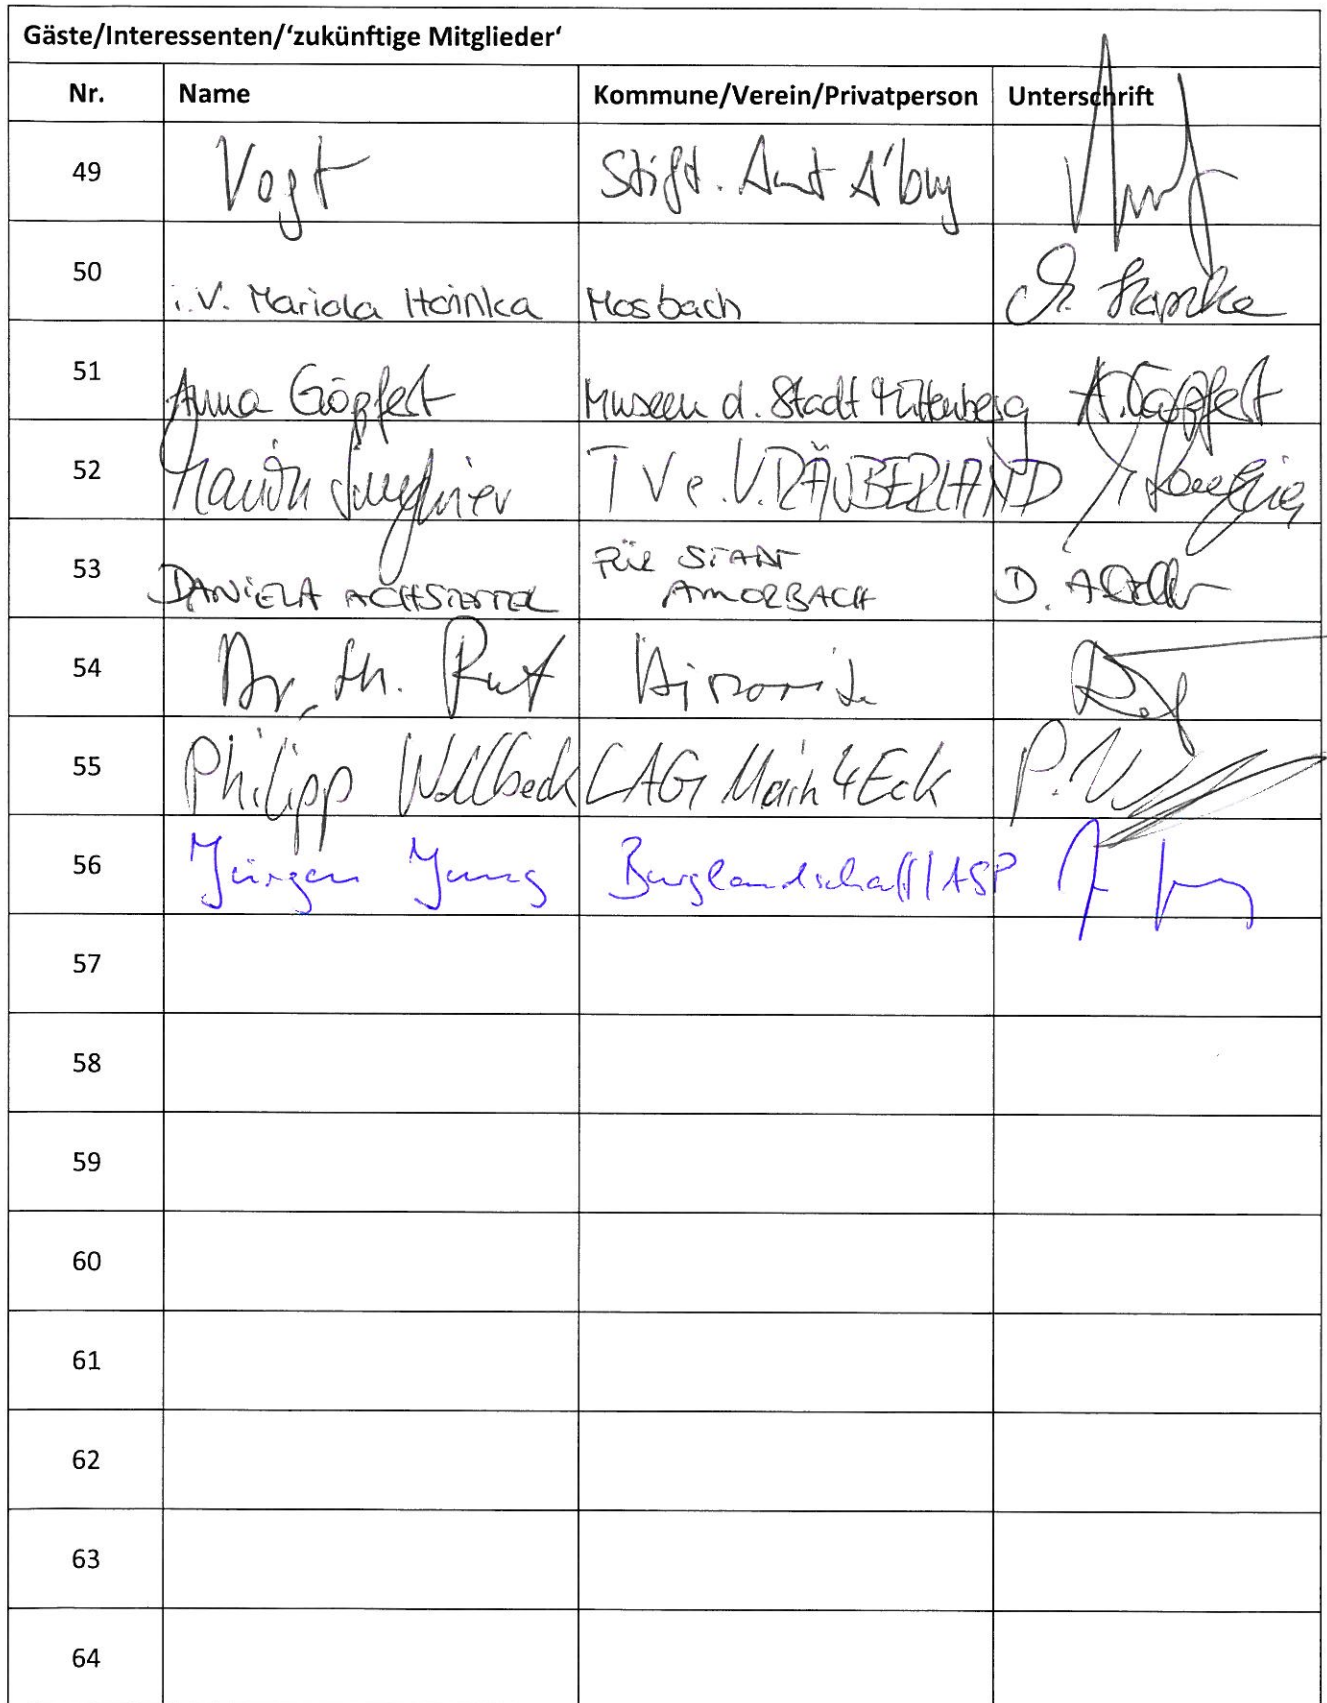 Gäste/Interessenten/‘zukünftige Mitglieder‘
Nr. Name Kommune/Verein/Privatperson Unterschrift
49 Vogt Stift. Amt A'burg
50 i.V. Mariola Hoinka Mosbach
51 Anna Göpfert Museen d. Stadt Miltenberg A. Göpfert
52 TV e.V. RÄUBERLAND
53 DANIELA FÜR STADT
AMORBACH D.
54 Dr. th. Ruf
55 Philipp Wollbeck LAG Main4Eck P.
56 Jürgen Jung Burglandschaft/ASP
57
58
59
60
61
62
63
64